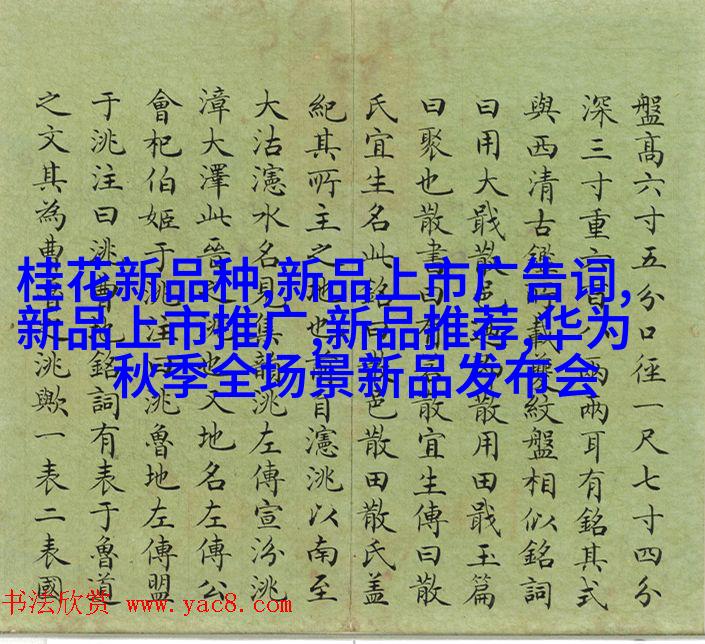 盤高六寸五分口徑一尺七寸四分
深三寸重六百 兩兩耳有銘其式
與西清古鑑 載夔紋盤相似銘詞
曰用大戢散邑 散用田戢玉篇
曰聚也散書曰有 散宜生傳曰散
氏宜生名此銘曰散邑散田散氏蓋
紀其所主之地也 自瀗洮以南至
大沽瀗水名見集韻洮左傳宣汾洮
漳大澤此晉 地也又地名左傳公
會杞伯姬于洮注曰洮魯地左傳盟
于洮注曰洮曹地銘詞有表于魯道
之文其為曹 洮歟一表二表國
桂花新品种,新品上市广告词,
新品上市推广,新品推荐,华为
秋季全场景新品发布会
书法欣赏 www.yac8.com